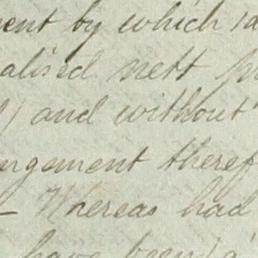 ent by which ia
alised nett pr
) and without
ngement theref
- Whereas had
have been) a